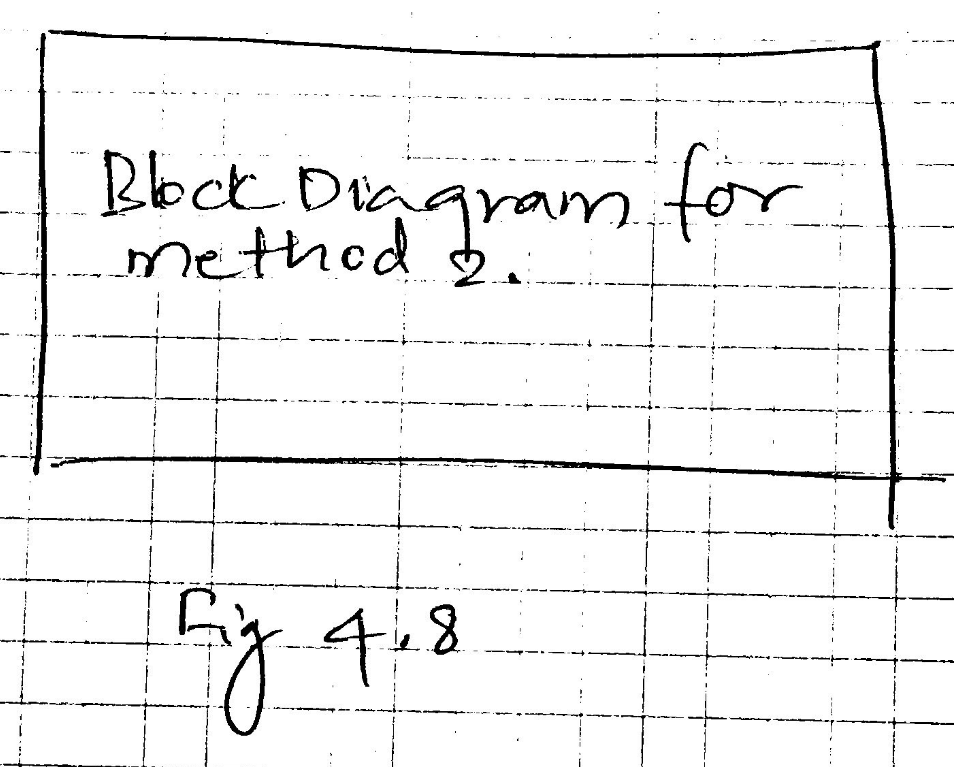 Block Diagram for
method 2.
Fig 4.8